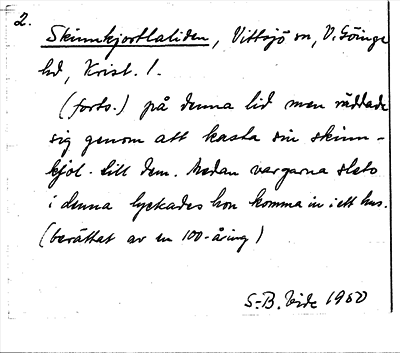 2.
Skinnkjortlaliden, Vittsjö sn, V. Göinge
hd, Krist. l.
(forts.) på denna lid men räddade
sig genom att kasta sin skinn-
kjol till dem. Medan vargarna sleto
i denna lyckades hon komma in i ett hus.
(berättat av en 100-åring)
S-B. Vide 1950